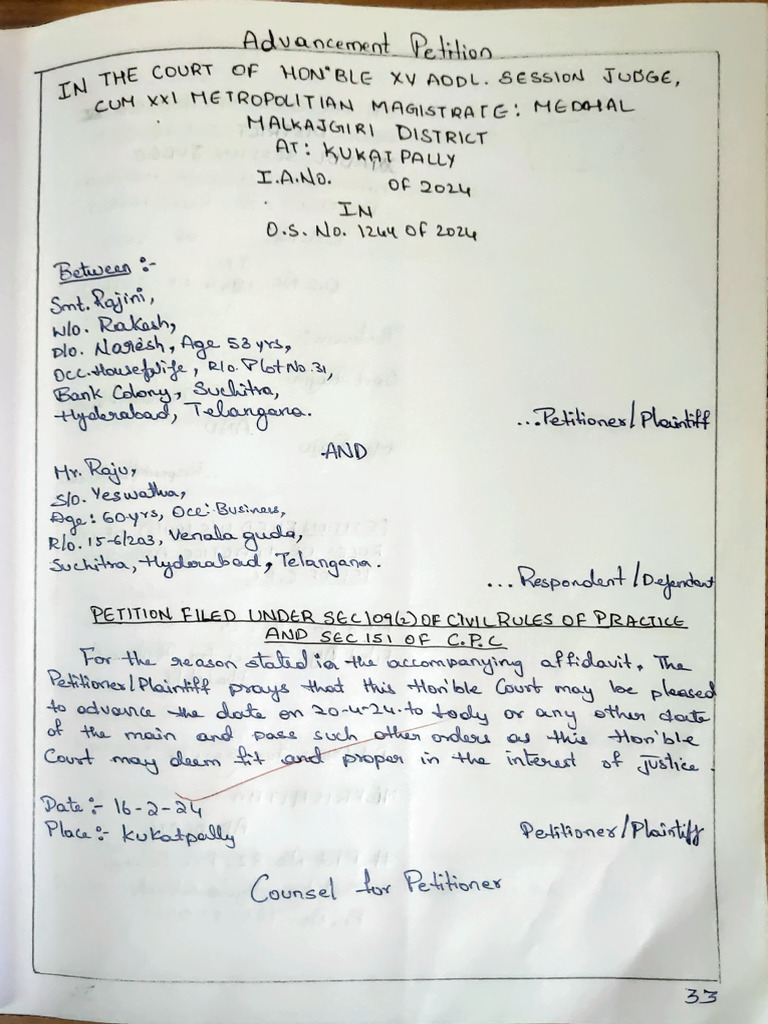 Advancement Petition
IN THE COURT OF HON'BLE XV ADDL. SESSION JUDGE,
CUM XXI METROPOLITIAN MAGISTRATE: MEDCHAL
MALKAJGIRI DISTRICT
AT: KUKATPALLY
I.A.No. OF 2024
IN
O.S. No. 1244 OF 2024
Between :-
Smt. Rajini,
W/o. Rakesh,
D/o. Naresh, Age 53 yrs,
Occ. Housewife, R/o. Plot No. 31,
Bank Colony, Suchitra,
Hyderabad, Telangana.
...Petitioner/Plaintiff
AND
Mr. Raju,
S/o. Yeswatha,
Age: 60yrs, Occ: Business,
R/o. 15-6/203, Venala guda,
Suchitra, Hyderabad, Telangana.
...Respondent/Defendant
PETITION FILED UNDER SEC 109(2) OF CIVIL RULES OF PRACTICE
AND SEC 151 OF C.P.C
For the reason stated in the accompanying affidavit, The
Petitioner/Plaintiff prays that this Hon'ble Court may be pleased
to advance the date on 20-4-24 to tody or any other date
of the main and pass such other orders as this Hon'ble
Court may deem fit and proper in the interest of justice.
Date:- 16-2-24
Place:- Kukatpally
Petitioner/Plaintiff
Counsel for Petitioner
33